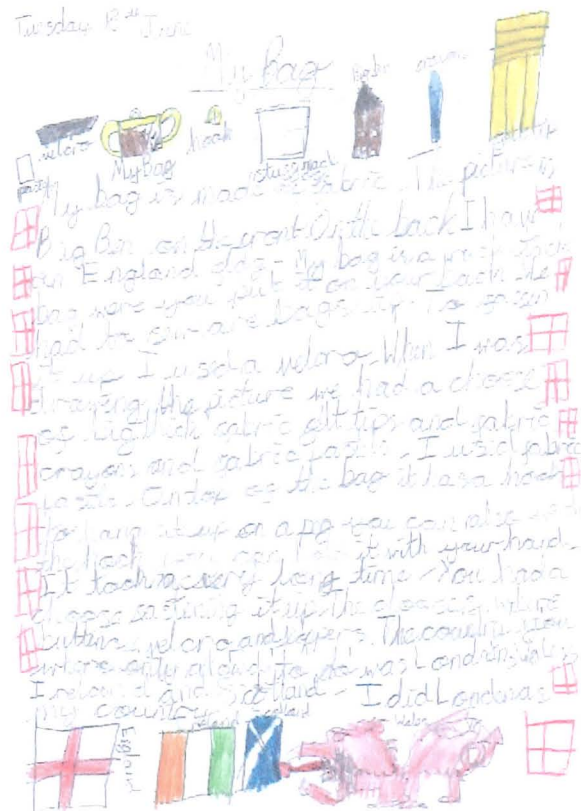 Tuesday 13th June
My Bag
velcro
My Bag
hook
crayon
My bag is made of fabric. The picture is
Big Ben on the front. On the back I have
an England flag. My bag is a
bag were you put it on your back. We
had to sew are bags up. To
it up I used a velcro. When I was
drawing the picture we had a choose
of big thick fabric felt tips and fabric
crayons and fabric pastls. I used fabric
pastls. On top of the bag it has a hook
to hang it up on a peg you can also
the hook you can it with your hand.
It took a very long time. You had a
choose fastining it up the chooses where
buttins, velcro and poppers. The countris you
where only alowd to do was London, wales,
Ireland and Scotland. I did London as
my country.
England
Ireland
Scotland
Wales